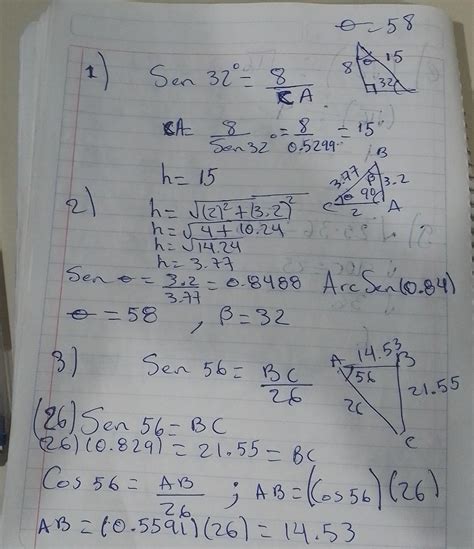 θ = 58
1) Sen 32° = 8 / CA
8 θ 15 32°
CA = 8 / Sen 32° = 8 / 0.5299 = 15
h = 15
B 3.77 β 3.2 θ 90 C 2 A
2) h = √(2)² + (3.2)²
h = √4 + 10.24
h = √14.24
h = 3.77
Sen θ = 3.2 / 3.77 = 0.8488 ArcSen(0.84)
θ = 58 , β = 32
3) Sen 56 = BC / 26
A 14.53 B 56 26 21.55 C
(26) Sen 56 = BC
(26)(0.829) = 21.55 = BC
Cos 56 = AB / 26 ; AB = (Cos 56)(26)
AB = (0.5591)(26) = 14.53